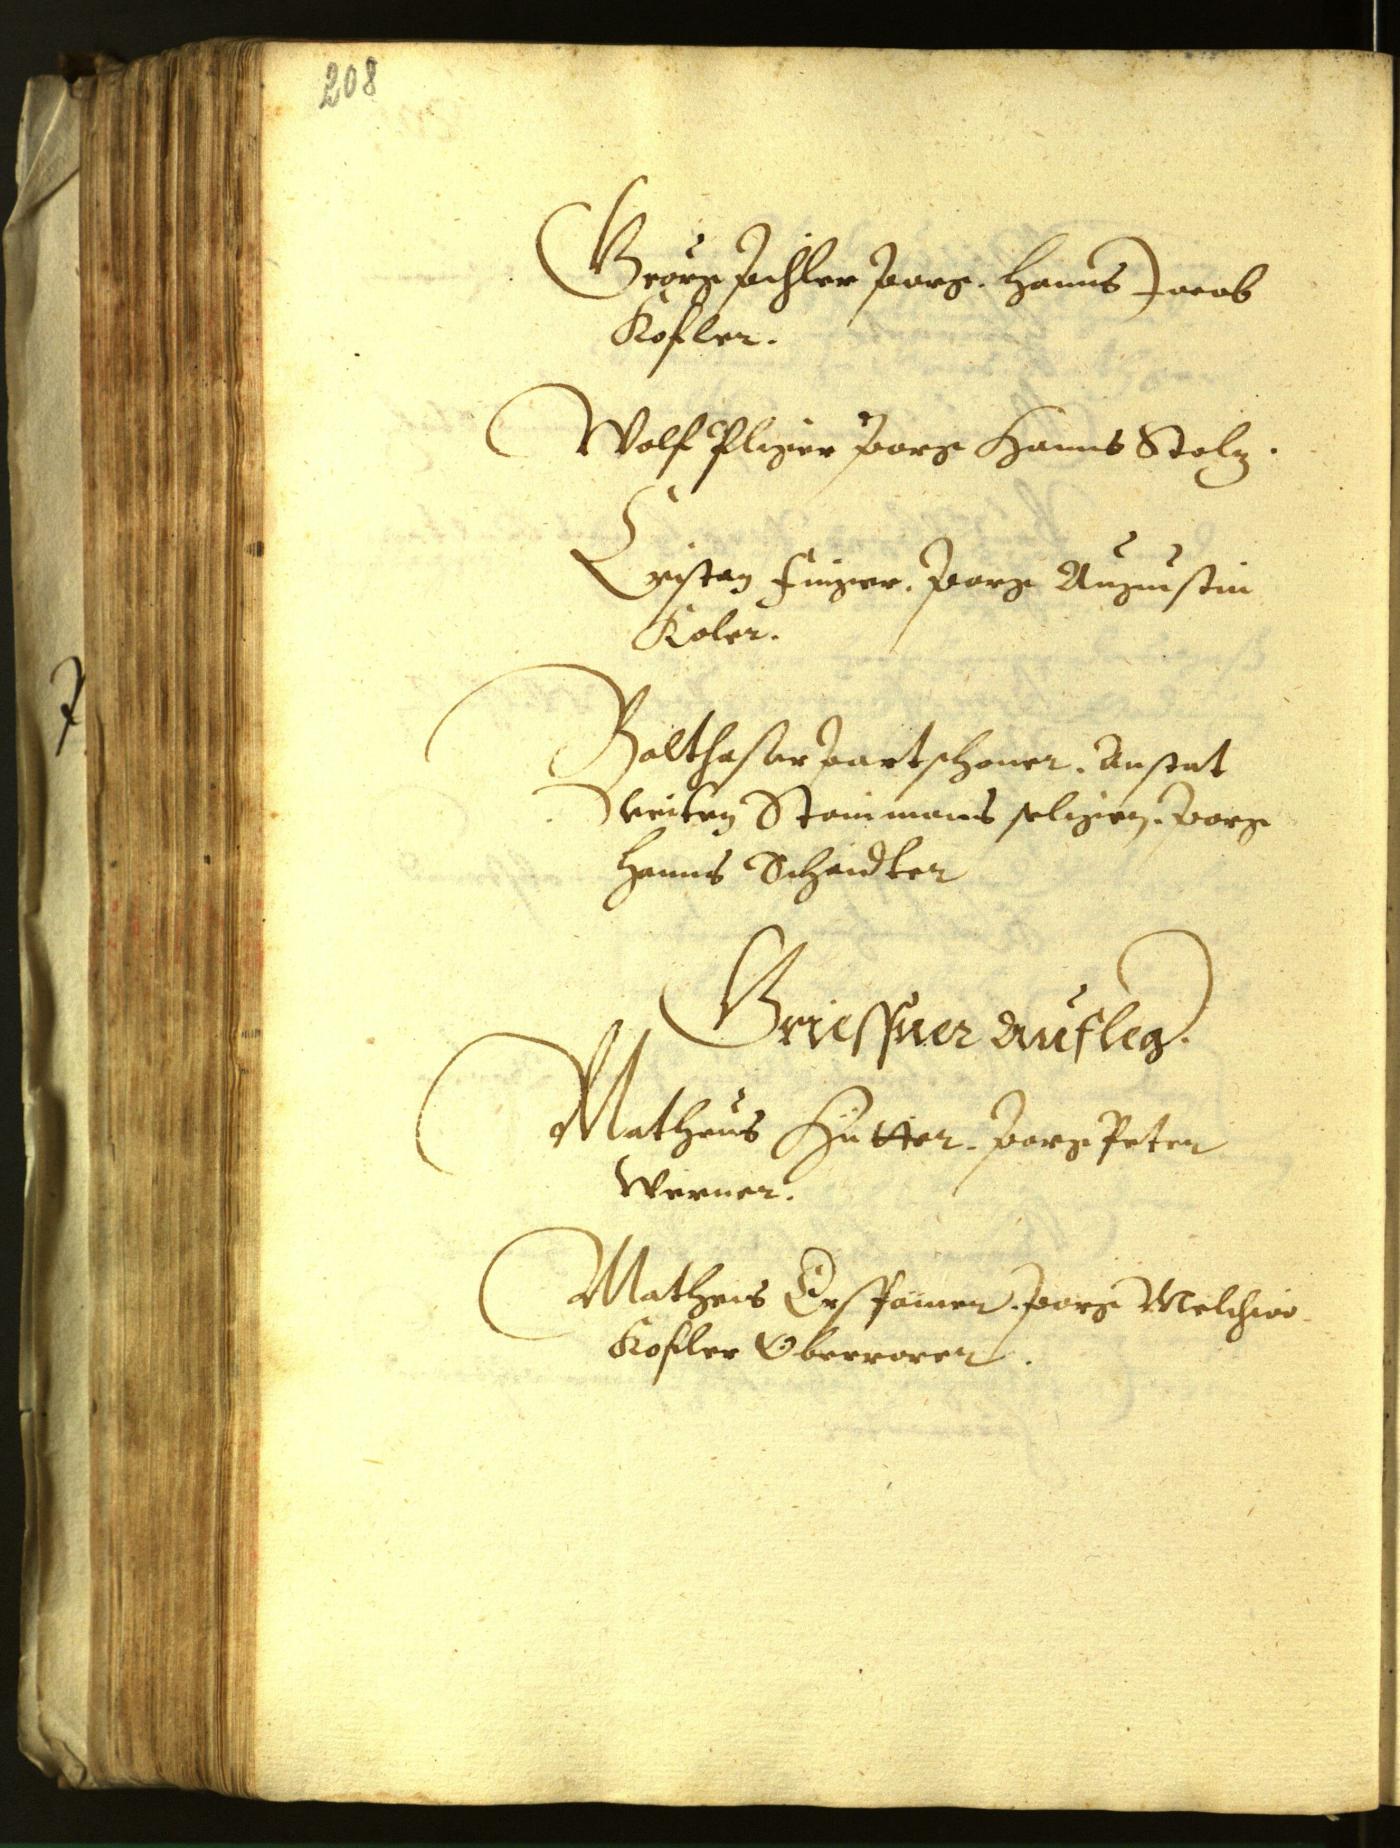 208
Geörg Pichler Porg. Hanns Jacob
Kofler.
Wolf Pliger Porg Hanns Stolz.
Cristan Finger. Porg Augustin
Koler.
Balthasar Partschoner. Anstat
Veiten Stainmans seligen. Porg
Hanns Schaidter
Griessner Aufleg.
Matheus Hütter. Porg Peter
Werner.
Matheis Erspamer. Porg Melchior
Kofler Oberrorer.